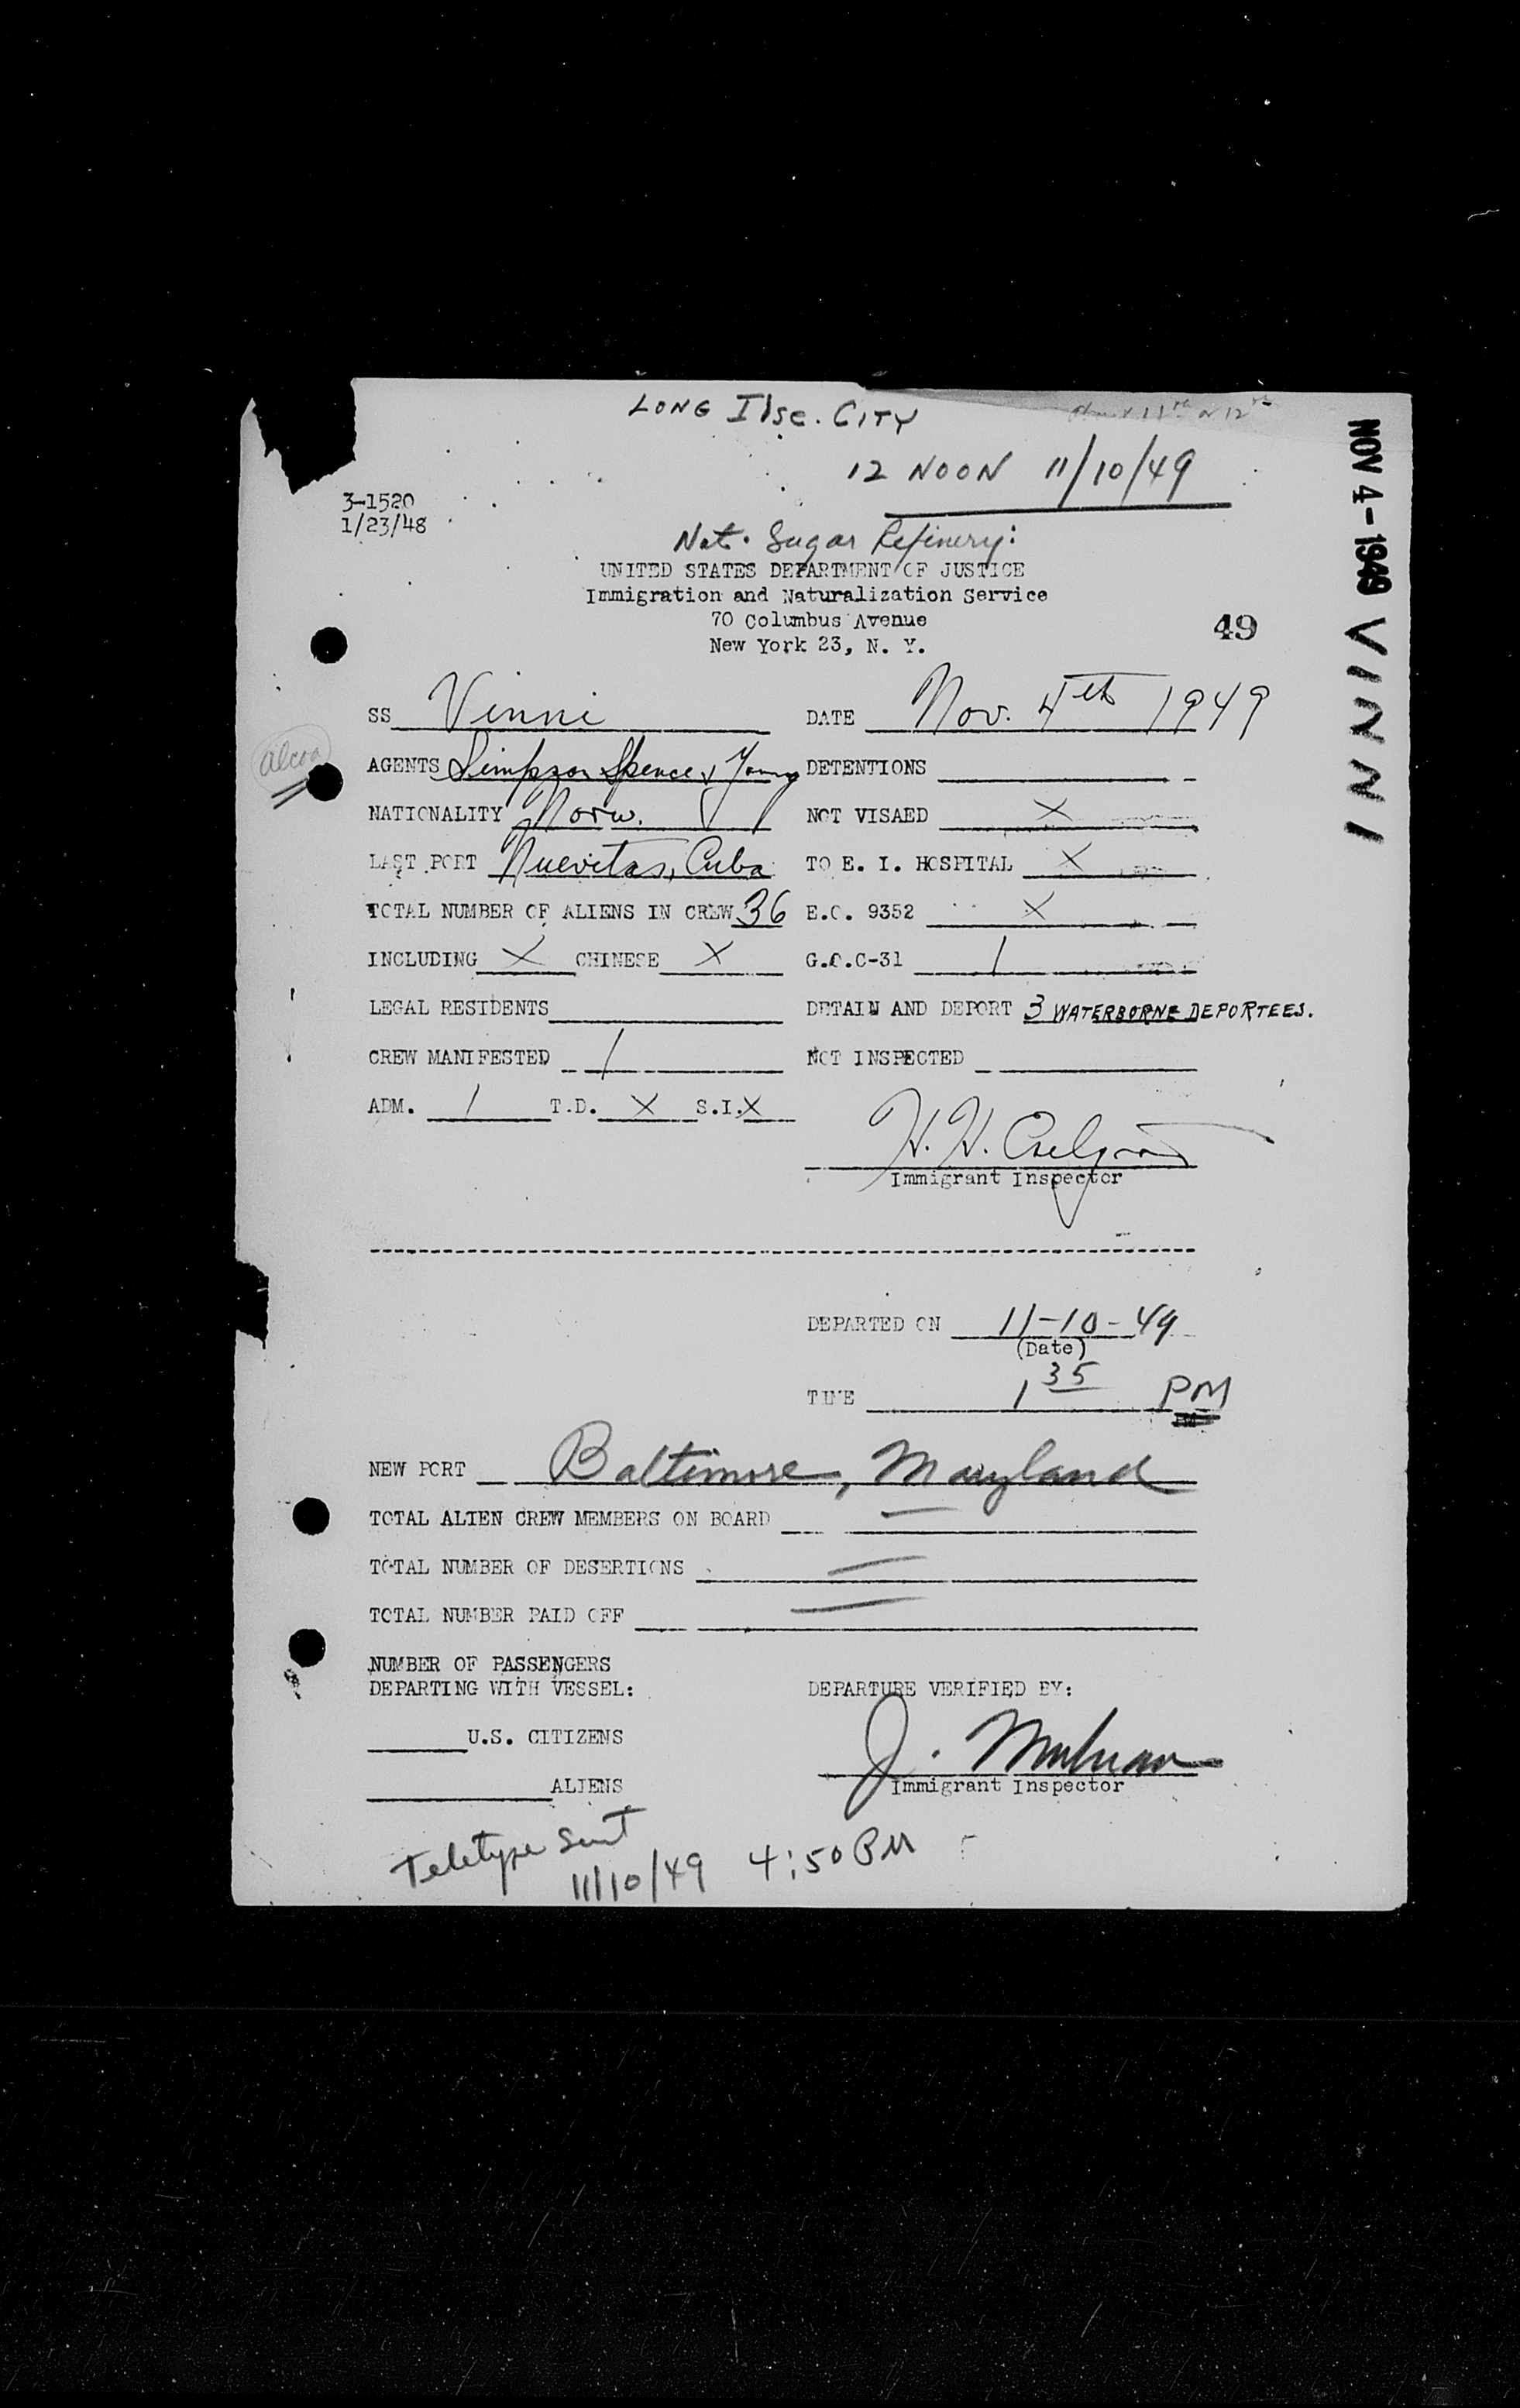 LONG Ilsc. CITY
11th or 12th
12 NOON 11/10/49
3-1520
1/23/48
Nat. Sugar Refinery:
UNITED STATES DEPARTMENT OF JUSTICE
Immigration and Naturalization Service
70 Columbus Avenue
New York 23, N. Y.
49
NOV 4-1949 VINNI
SS Vinni DATE Nov. 4th 1949
alcoa
AGENTS Simpson Spence & Young DETENTIONS
NATIONALITY Norw. NOT VISAED X
LAST PORT Nuevitas, Cuba TO E. I. HOSPITAL X
TOTAL NUMBER OF ALIENS IN CREW 36 E.O. 9352 X
INCLUDING X CHINESE X G.O.C-31 1
LEGAL RESIDENTS DETAIN AND DEPORT 3 WATERBORNE DEPORTEES.
CREW MANIFESTED 1 NOT INSPECTED
ADM. 1 T.D. X S.I. X
H. H.
Immigrant Inspector
DEPARTED ON 11-10-49
(Date)
TIME 1 35 PM
NEW PORT Baltimore, Maryland
TOTAL ALIEN CREW MEMBERS ON BOARD —
TOTAL NUMBER OF DESERTIONS —
TOTAL NUMBER PAID OFF —
NUMBER OF PASSENGERS
DEPARTING WITH VESSEL: DEPARTURE VERIFIED BY:
U.S. CITIZENS
J.
Immigrant Inspector
ALIENS
Teletype Sent
11/10/49 4:50 PM